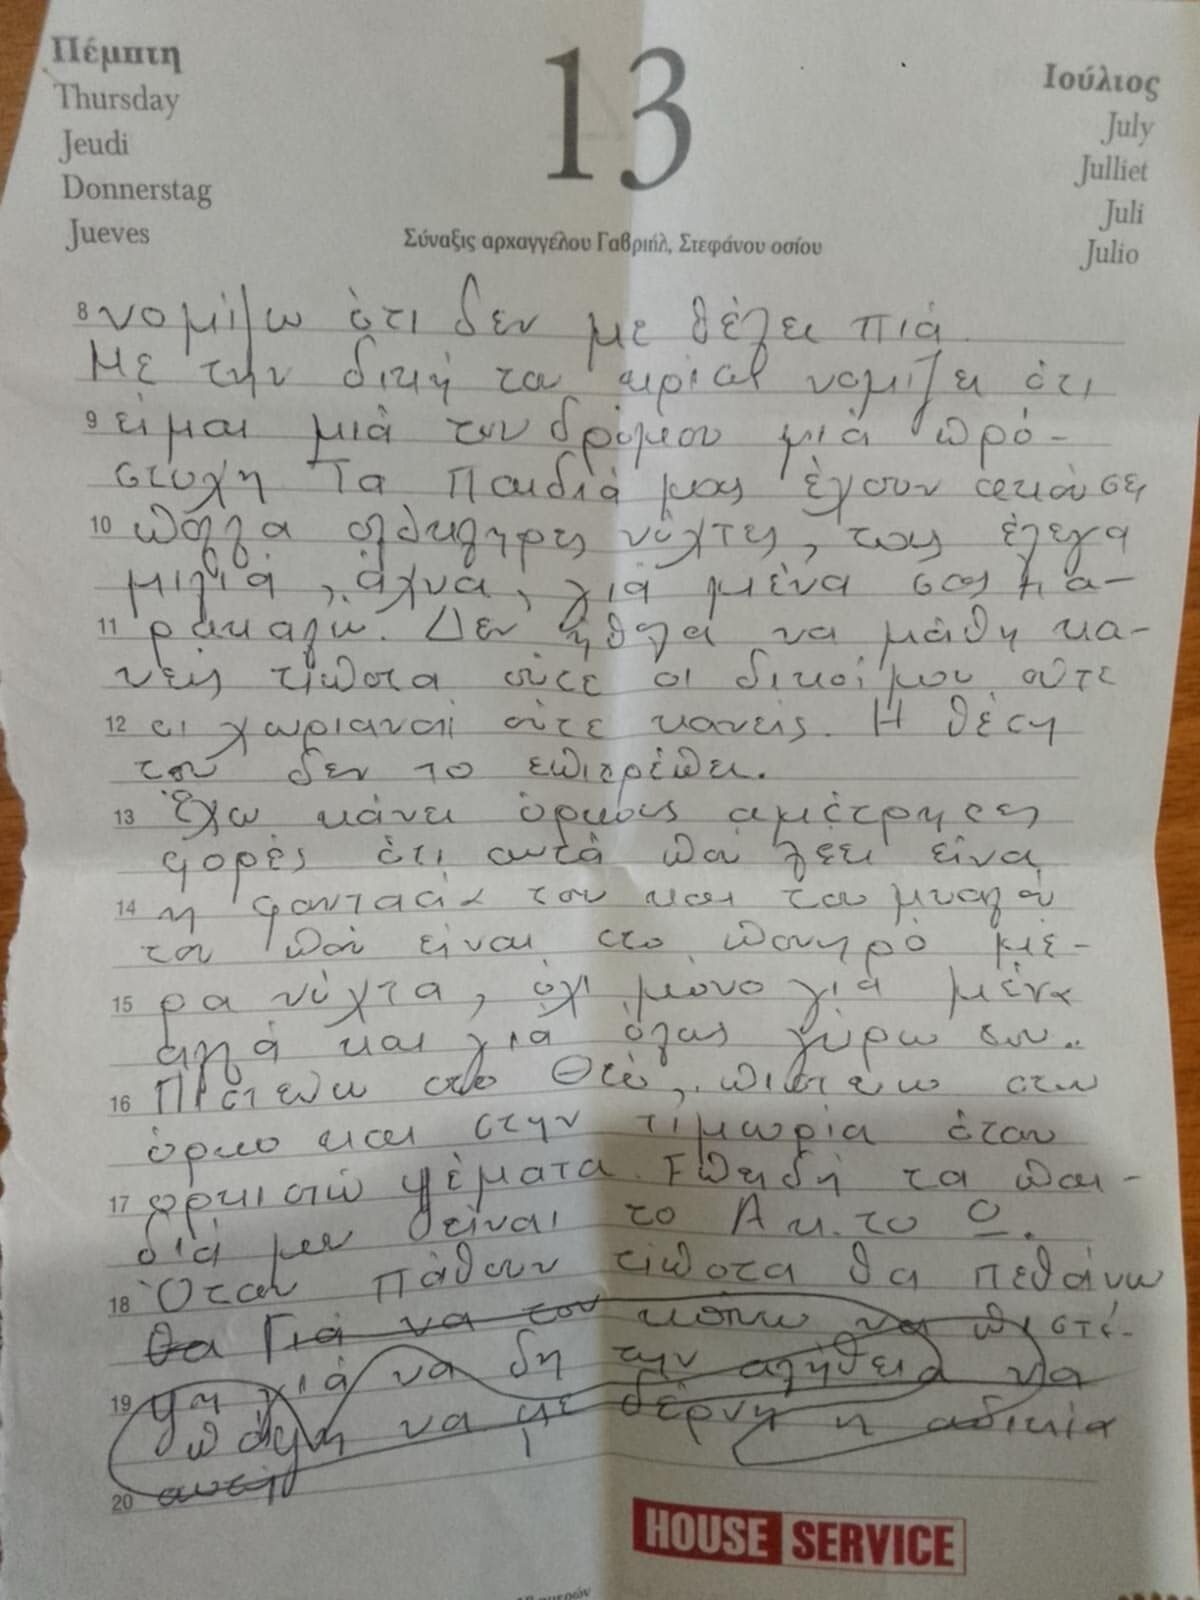 Πέμπτη
Thursday
Jeudi
Donnerstag
Jueves
13
Ιούλιος
July
Julliet
Juli
Julio
Σύναξις αρχαγγέλου Γαβριήλ, Στεφάνου οσίου
8 νομίζω ότι δεν με θέλει πιά
Με την δική του κρίση νομίζει ότι
9 είμαι μιά του δρόμου μιά πρό-
στυχη Τα Παιδιά μας έχουν ακούσει
10 πολλά ολόκληρες νύχτες, τους έλεγα
μιλιά, άχνα, γιά μένα σας πα-
11 ρακαλώ. Δεν ήθελα να μάθη κα-
νείς τίποτα ούτε οι δικοί μου ούτε
12 οι χωριανοί ούτε κανείς. Η θέση
του δεν το επιτρέπει.
13 Έχω κάνει όρκους αμέτρητες
φορές ότι αυτά που λέει είναι
14 η φαντασία του και του μυαλού
του που είναι στο πονηρό μέ-
15 ρα νύχτα, όχι μόνο γιά μένα
αλλά και γιά όλους γύρω του..
16 Πιστεύω στο Θεό, πιστεύω στον
όρκο και στην τιμωρία όταν
17 ορκιστώ ψέματα. Επειδή τα παι-
διά μου είναι το Α κ. το Ω.
18 Όταν πάθουν τίποτα θα πεθάνω
θα Γιά να τον κάνω να πιστέ-
19 ψη γιά να δη την αλήθεια να
πάψη να με δέρνη η αδικία
20 αυτή
HOUSE SERVICE